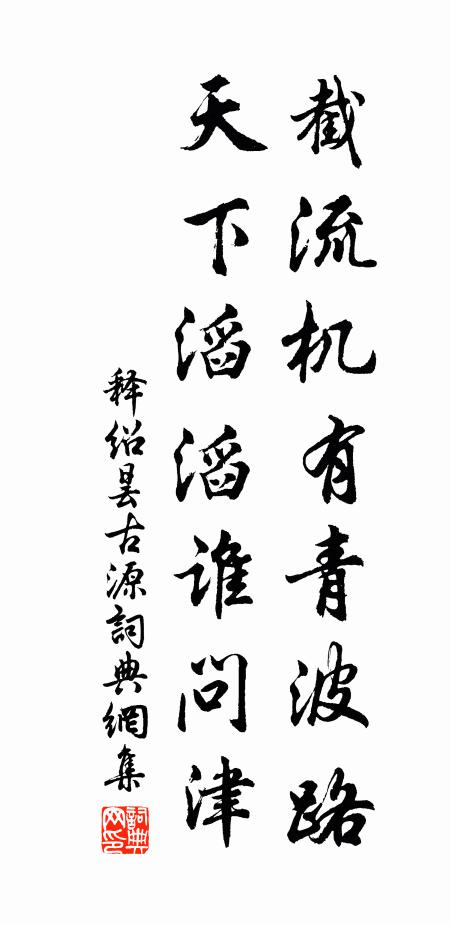 截流机有青波路
天下滔滔谁问津
释绍昙古源詞典網集
詞典网印